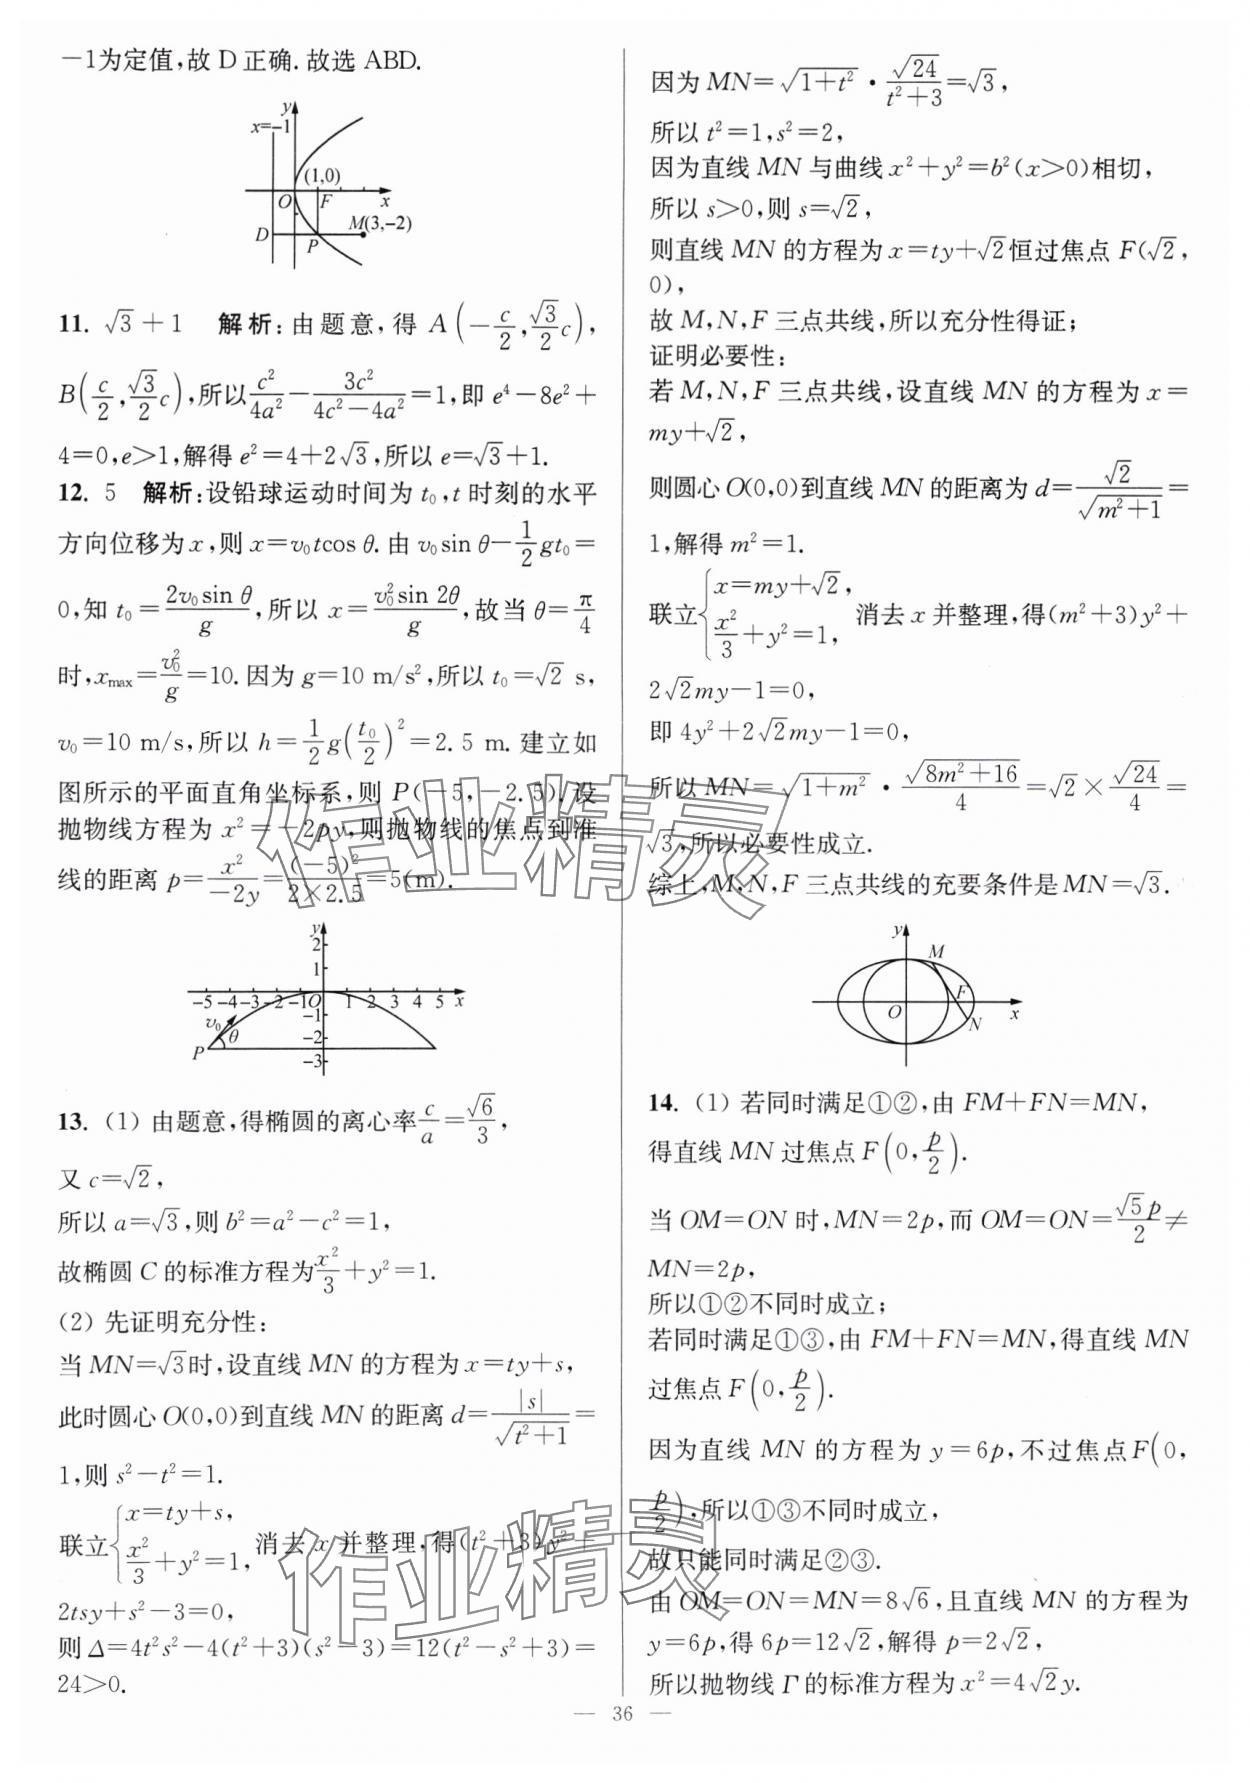 -1为定值,故 D 正确.故选 ABD.
y
x=-1
(1,0)
O F x
M(3,-2)
D P
11. √3+1 解析:由题意,得 A(-c/2,√3/2 c),
B(c/2,√3/2 c),所以c²/4a²-3c²/(4c²-4a²)=1,即 e⁴-8e²+
4=0,e>1,解得 e²=4+2√3,所以 e=√3+1.
12. 5 解析:设铅球运动时间为 t₀,t 时刻的水平
方向位移为 x,则 x=v₀tcos θ.由 v₀sin θ-1/2 gt₀=
0,知 t₀=2v₀sin θ/g,所以 x=v₀²sin 2θ/g,故当 θ=π/4
时,xmax=v₀²/g=10.因为 g=10 m/s²,所以 t₀=√2 s,
v₀=10 m/s,所以 h=1/2 g(t₀/2)²=2.5 m.建立如
图所示的平面直角坐标系,则 P(-5,-2.5).设
抛物线方程为 x²=-2py,则抛物线的焦点到准
线的距离 p=x²/-2y=(-5)²/(2×2.5)=5(m).
y
2
1
-5 -4 -3 -2 -1 O 1 2 3 4 5 x
-1
v₀
θ
-2
P
-3
13. (1) 由题意,得椭圆的离心率c/a=√6/3,
又 c=√2,
所以 a=√3,则 b²=a²-c²=1,
故椭圆 C 的标准方程为x²/3+y²=1.
(2) 先证明充分性:
当 MN=√3时,设直线 MN 的方程为 x=ty+s,
此时圆心 O(0,0)到直线 MN 的距离 d=|s|/√(t²+1)=
1,则 s²-t²=1.
联立{x=ty+s, x²/3+y²=1, 消去 x 并整理,得(t²+3)y²+
2tsy+s²-3=0,
则 Δ=4t²s²-4(t²+3)(s²-3)=12(t²-s²+3)=
24>0.
因为 MN=√(1+t²)·√24/(t²+3)=√3,
所以 t²=1,s²=2,
因为直线 MN 与曲线 x²+y²=b²(x>0)相切,
所以 s>0,则 s=√2,
则直线 MN 的方程为 x=ty+√2恒过焦点 F(√2,
0),
故 M,N,F 三点共线,所以充分性得证;
证明必要性:
若 M,N,F 三点共线,设直线 MN 的方程为 x=
my+√2,
则圆心O(0,0)到直线MN的距离为 d=√2/√(m²+1)=
1,解得 m²=1.
联立{x=my+√2, x²/3+y²=1, 消去 x 并整理,得(m²+3)y²+
2√2my-1=0,
即 4y²+2√2my-1=0,
所以 MN=√(1+m²)·√(8m²+16)/4=√2×√24/4=
√3,所以必要性成立.
综上,M,N,F 三点共线的充要条件是 MN=√3.
y
M
O
F
x
N
14. (1) 若同时满足①②,由 FM+FN=MN,
得直线 MN 过焦点 F(0,p/2).
当 OM=ON 时,MN=2p,而 OM=ON=√5p/2≠
MN=2p,
所以①②不同时成立;
若同时满足①③,由 FM+FN=MN,得直线 MN
过焦点 F(0,p/2).
因为直线 MN 的方程为 y=6p,不过焦点F(0,
p/2),所以①③不同时成立,
故只能同时满足②③.
由 OM=ON=MN=8√6,且直线 MN 的方程为
y=6p,得 6p=12√2,解得 p=2√2,
所以抛物线 Γ 的标准方程为 x²=4√2y.
— 36 —
作业精灵
作业精灵